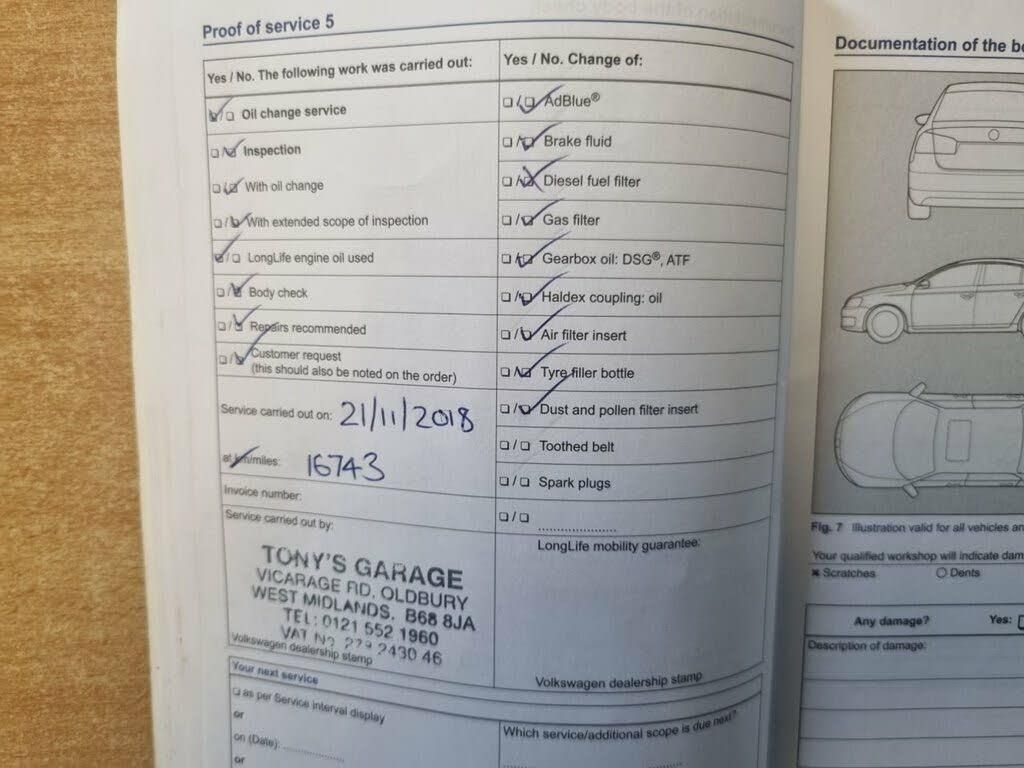 Proof of service 5
Yes / No. The following work was carried out:
☑/☐ Oil change service
☐/☑ Inspection
☐/☑ With oil change
☐/☑ With extended scope of inspection
☑/☐ LongLife engine oil used
☐/☑ Body check
☐/☑ Repairs recommended
☐/☑ Customer request
(this should also be noted on the order)
Service carried out on: 21/11/2018
at km/miles: 16743
Invoice number:
Service carried out by:
TONY'S GARAGE
VICARAGE RD, OLDBURY
WEST MIDLANDS. B68 8JA
TEL: 0121 552 1960
VAT No 2430 46
Volkswagen dealership stamp
Your next service
☐ as per Service interval display
or
on (Date):
or
Yes / No. Change of:
☐/☑ AdBlue®
☐/☑ Brake fluid
☐/☒ Diesel fuel filter
☐/☑ Gas filter
☐/☑ Gearbox oil: DSG®, ATF
☐/☑ Haldex coupling: oil
☐/☑ Air filter insert
☐/☑ Tyre filler bottle
☐/☑ Dust and pollen filter insert
☐/☐ Toothed belt
☐/☐ Spark plugs
☐/☐ ....................
LongLife mobility guarantee:
Volkswagen dealership stamp
Which service/additional scope is due next?
Documentation of the
Fig. 7 Illustration valid for all vehicles
Your qualified workshop will indicate
✖ Scratches ○ Dents
Any damage? Yes:
Description of damage: